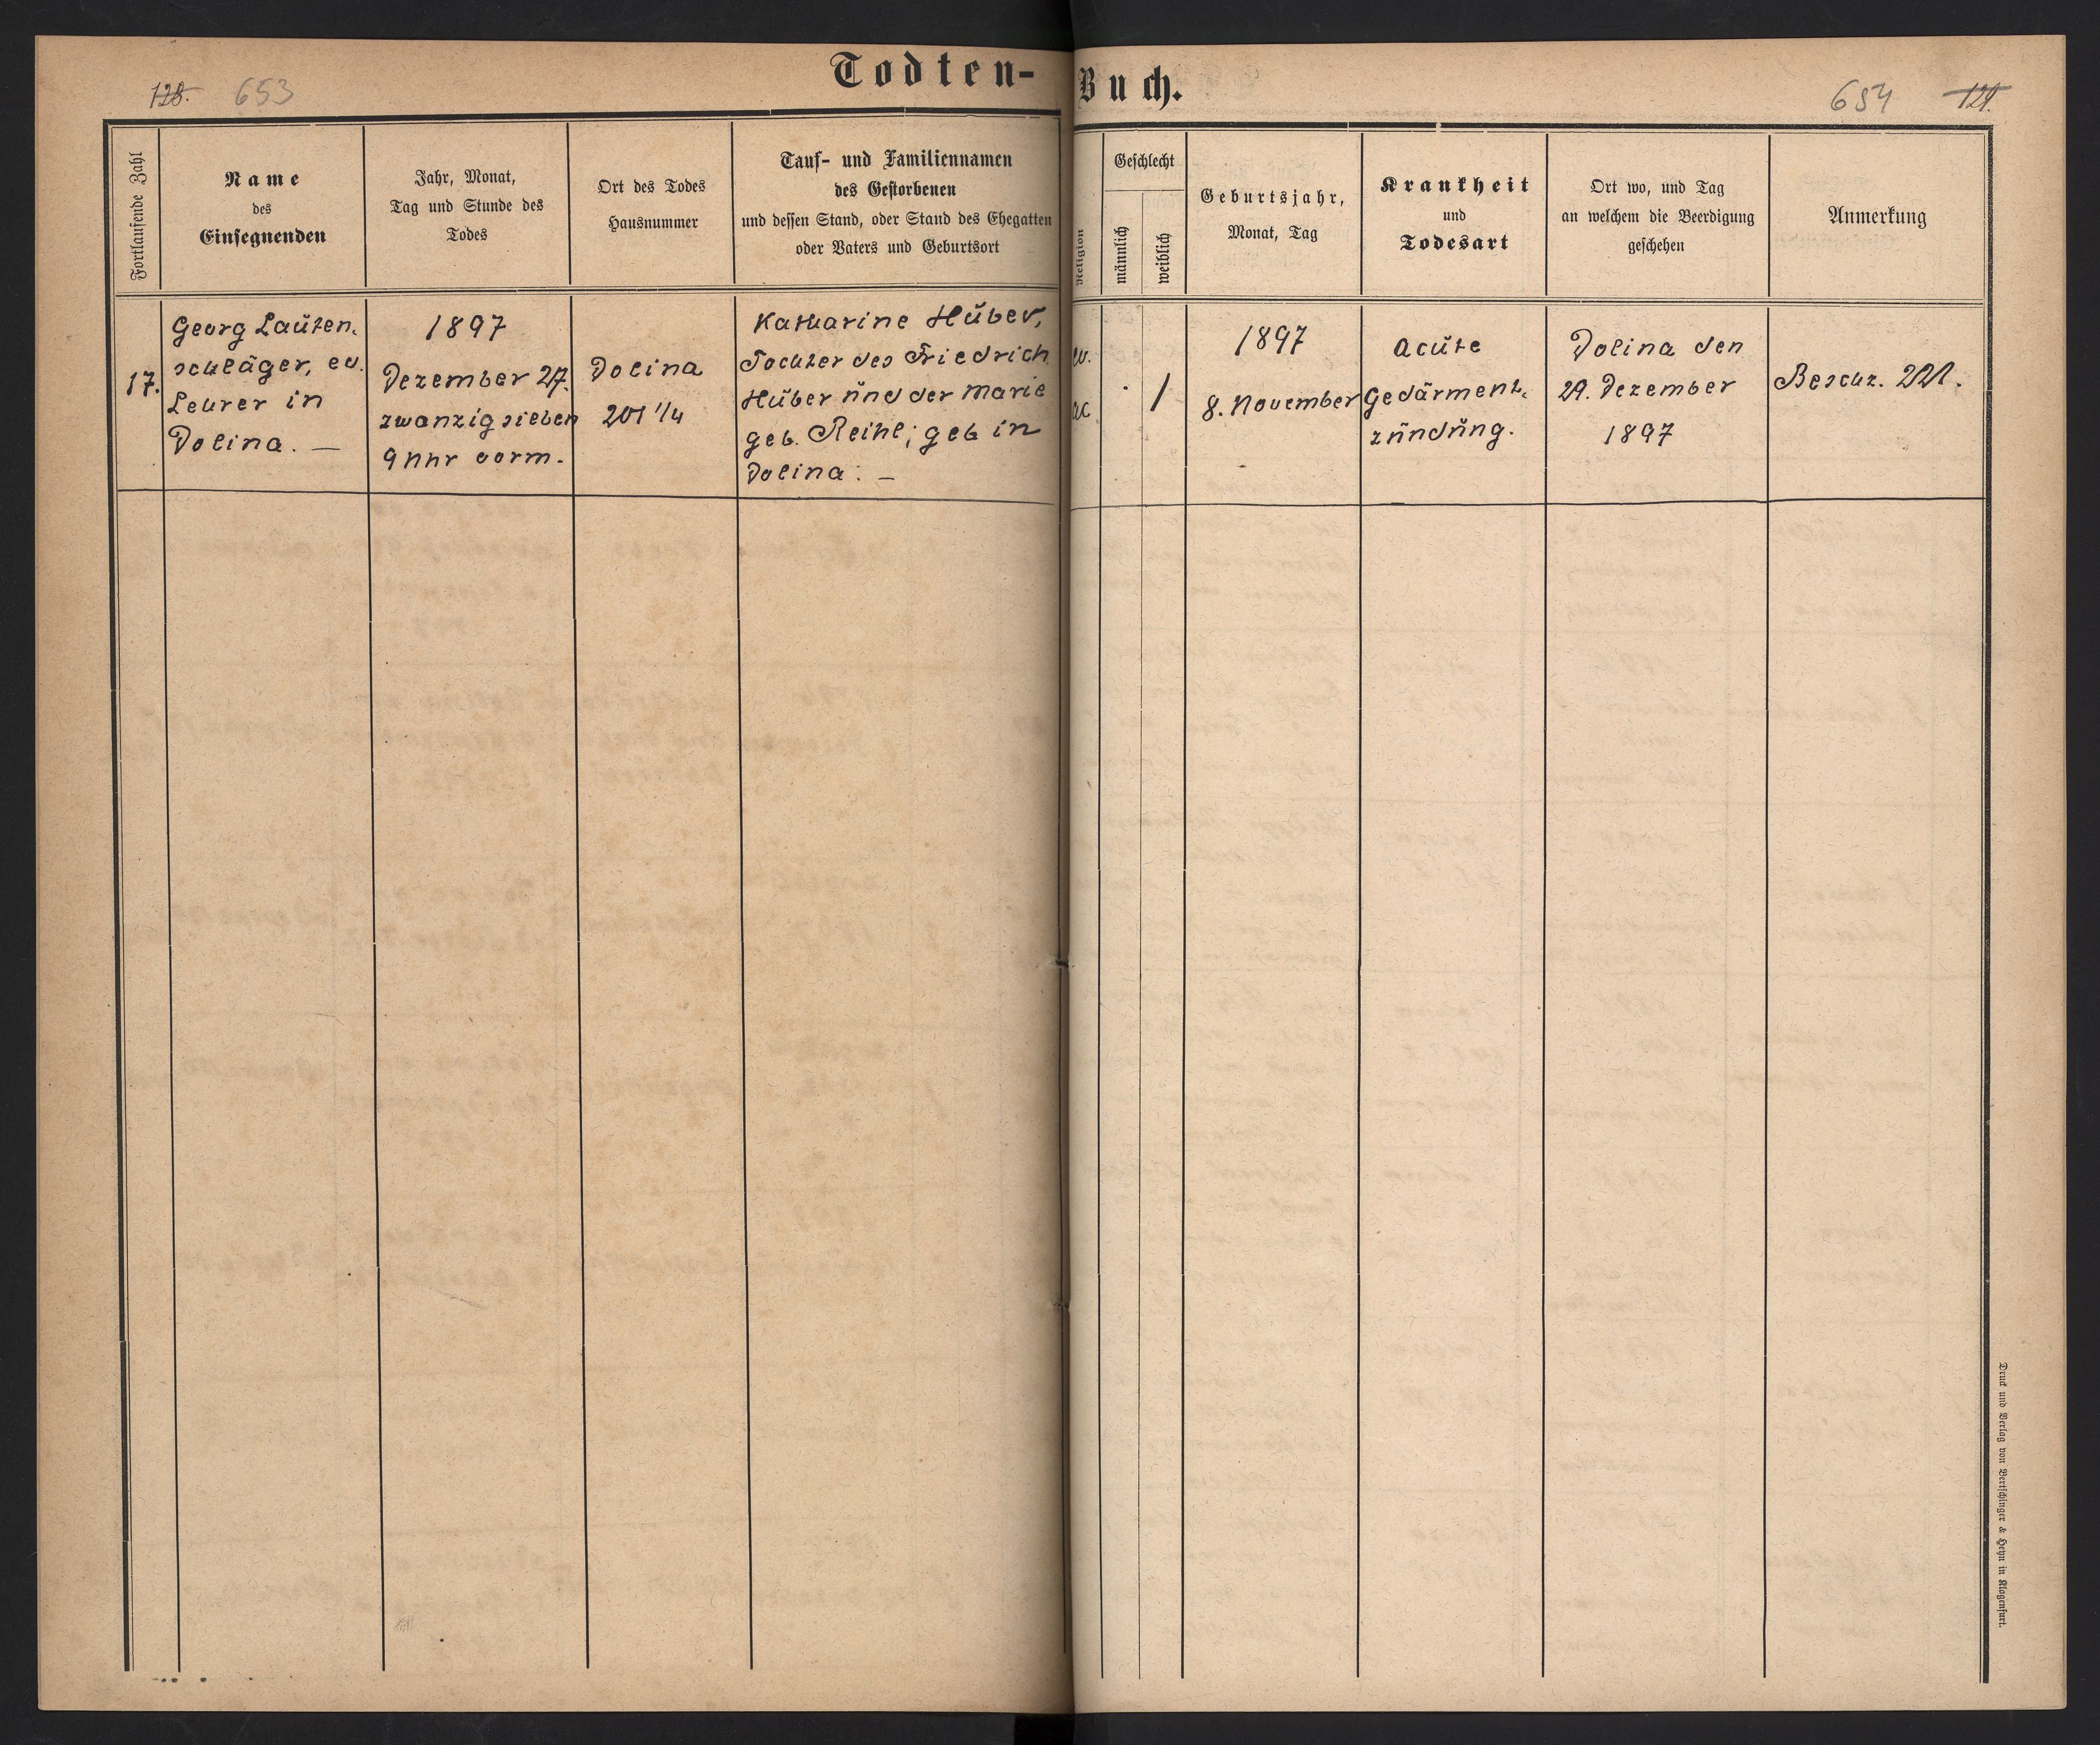 Todten-Buch.
128. 653
654 129.
Fortlaufende Zahl
Name
des
Einsegnenden
Jahr, Monat,
Tag und Stunde des
Todes
Ort des Todes
Hausnummer
Tauf- und Familiennamen
des Gestorbenen
und dessen Stand, oder Stand des Ehegatten
oder Vaters und Geburtsort
Religion
Geschlecht
männlich
weiblich
Geburtsjahr,
Monat, Tag
Krankheit
und
Todesart
Ort wo, und Tag
an welchem die Beerdigung
geschehen
Anmerkung
17.
Georg Lauten-
schläger, ev.
Lehrer in
Dolina. —
1897
Dezember 27.
zwanzigsieben
9 Uhr vorm.
Dolina
201 1/4
Katharine Huber,
Tochter des Friedrich
Huber und der Marie
geb. Reihl; geb in
Dolina. —
ev.
ac
1
1897
8. November
Acute
Gedärment-
zündung.
Dolina den
29. Dezember
1897
Beschz. 221.
Druck und Verlag von Bertschinger & Heyn in Klagenfurt.